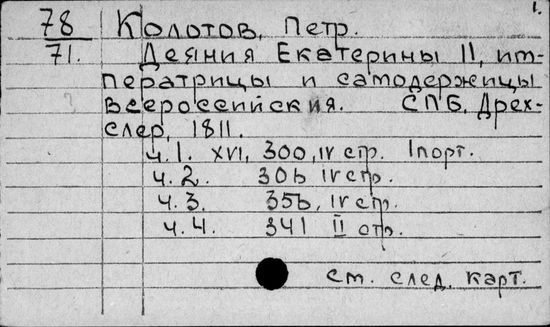 1.
78 Колотов, Петр.
71. Деяния Екатерины II, им-
ператрицы и самодержицы
всероссийския. СПБ, Дрех-
слер, 1811.
ч. 1. XVI, 300, IV стр. 1 порт.
ч. 2. 306 IV стр.
ч. 3. 356, IV стр.
ч. 4. 341 II стр.
См. след. карт.